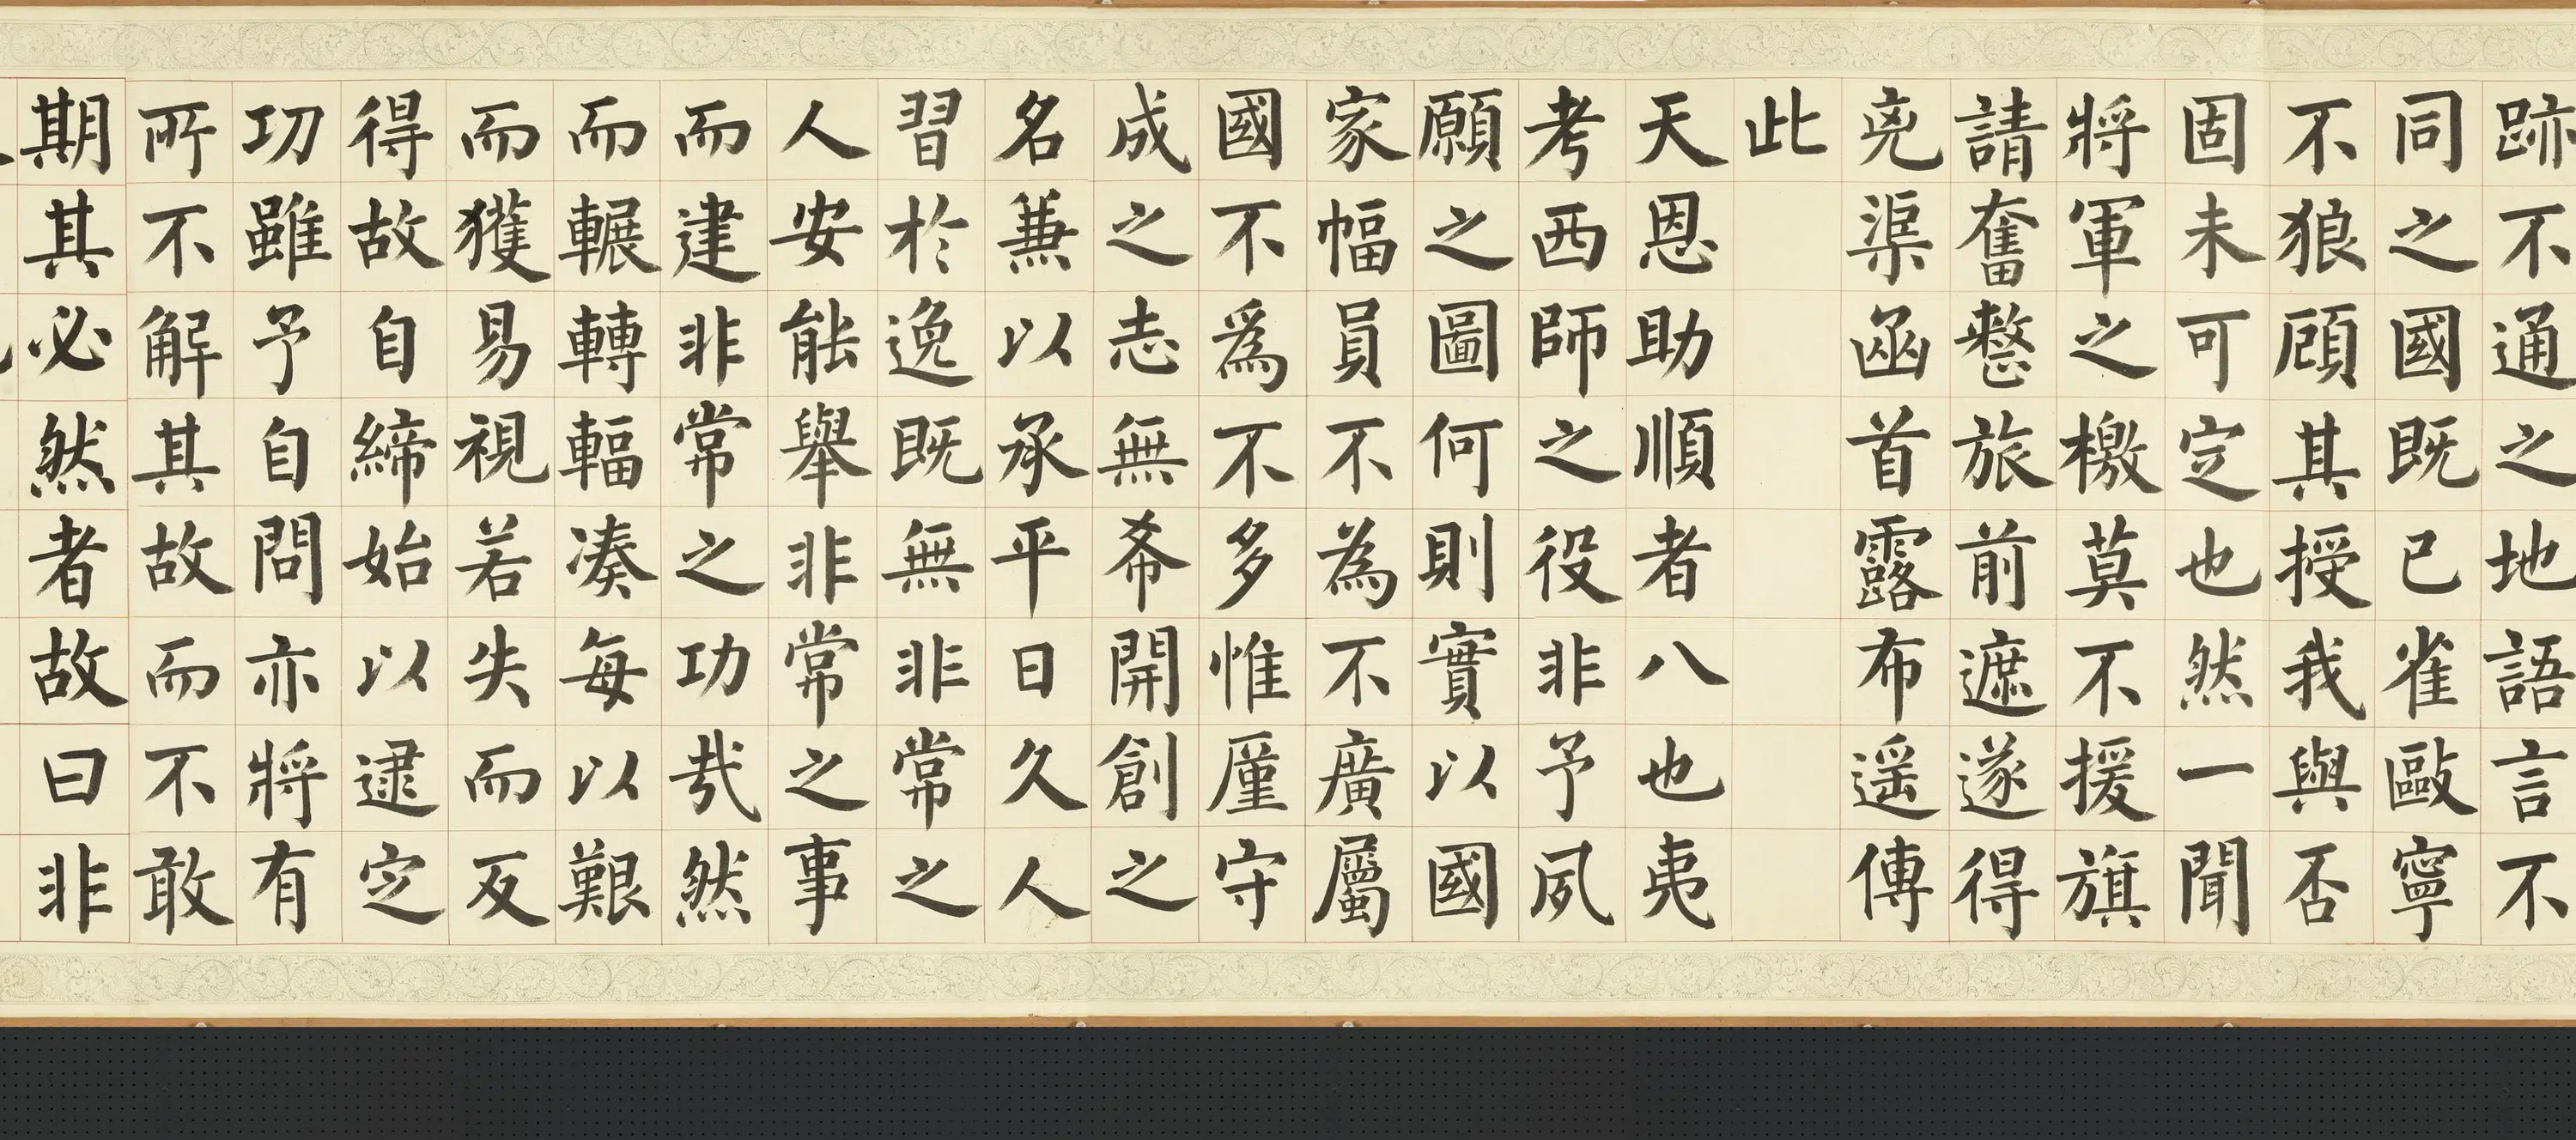 跡不通之地語言不
同之國既已雀毆寧
不狼顧其授我與否
固未可定也然一聞
將軍之檄莫不援旗
請奮整旅前遮遂得
兇渠函首露布遥傳
此
天恩助順者八也夷
考西師之役非予夙
願之圖何則實以國
家幅員不為不廣屬
國不爲不多惟厪守
成之志無希開創之
名兼以承平日久人
習於逸既無非常之
人安能舉非常之事
而建非常之功哉然
而輾轉輻凑每以艱
而獲易視若失而反
得故自締始以逮定
功雖予自問亦將有
所不解其故而不敢
期其必然者故曰非